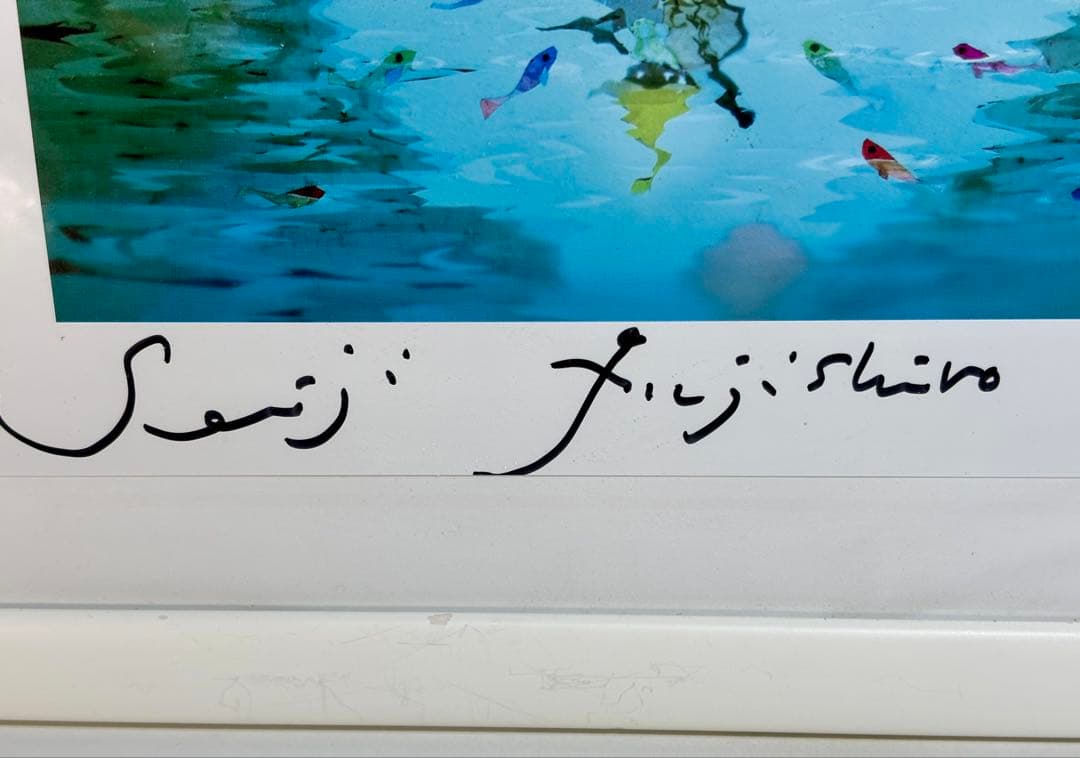 Seiji Fujishiro